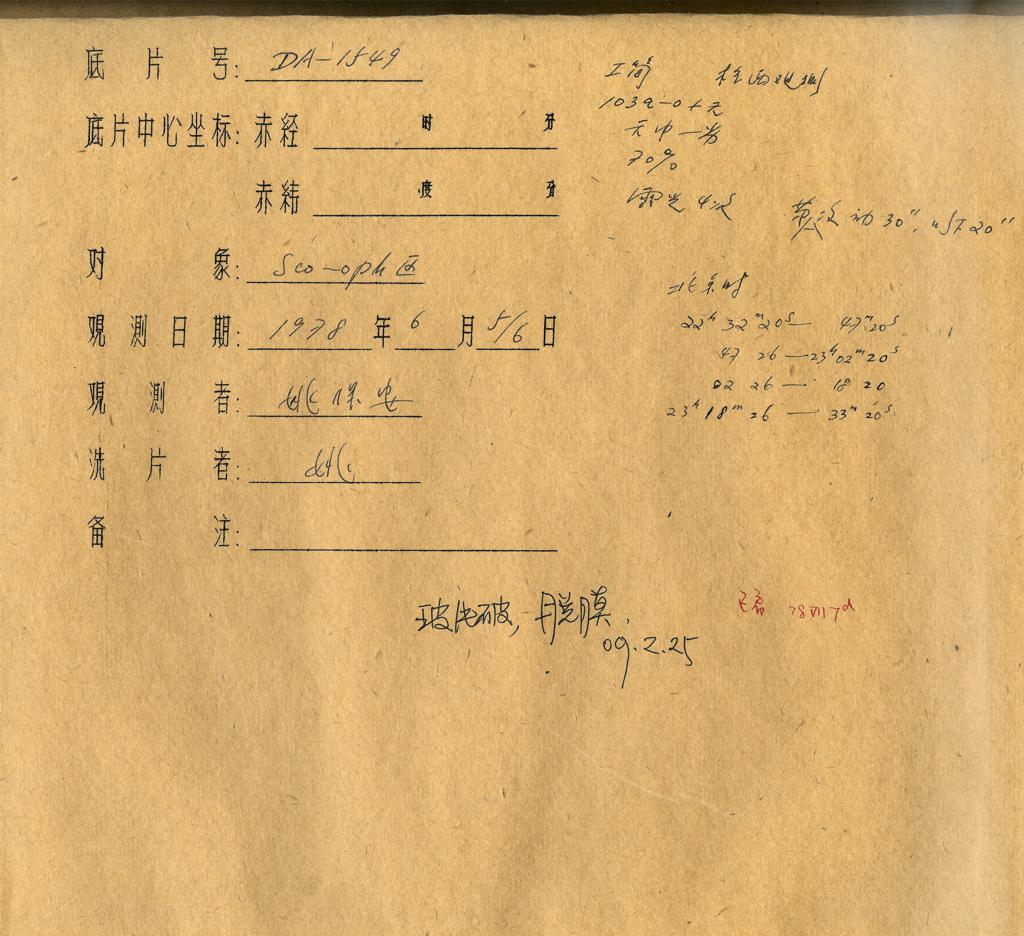 底片号: DA-1549
底片中心坐标: 赤经 时 分
赤纬 度 分
对象: Sco-oph 区
观测日期: 1978 年 6 月 5/6 日
观测者: 姚保安
洗片者: 姚
备注:
103a-0 + 元
70%
露光 4次
30", 20"
北京时
22ʰ 32ᵐ 20ˢ — 47ᵐ 20ˢ
47 26 — 23ʰ 02ᵐ 20ˢ
02 26 — 18 20
23ʰ 18ᵐ 26 — 33ᵐ 20ˢ
玻片破, 脱膜.
09.2.25